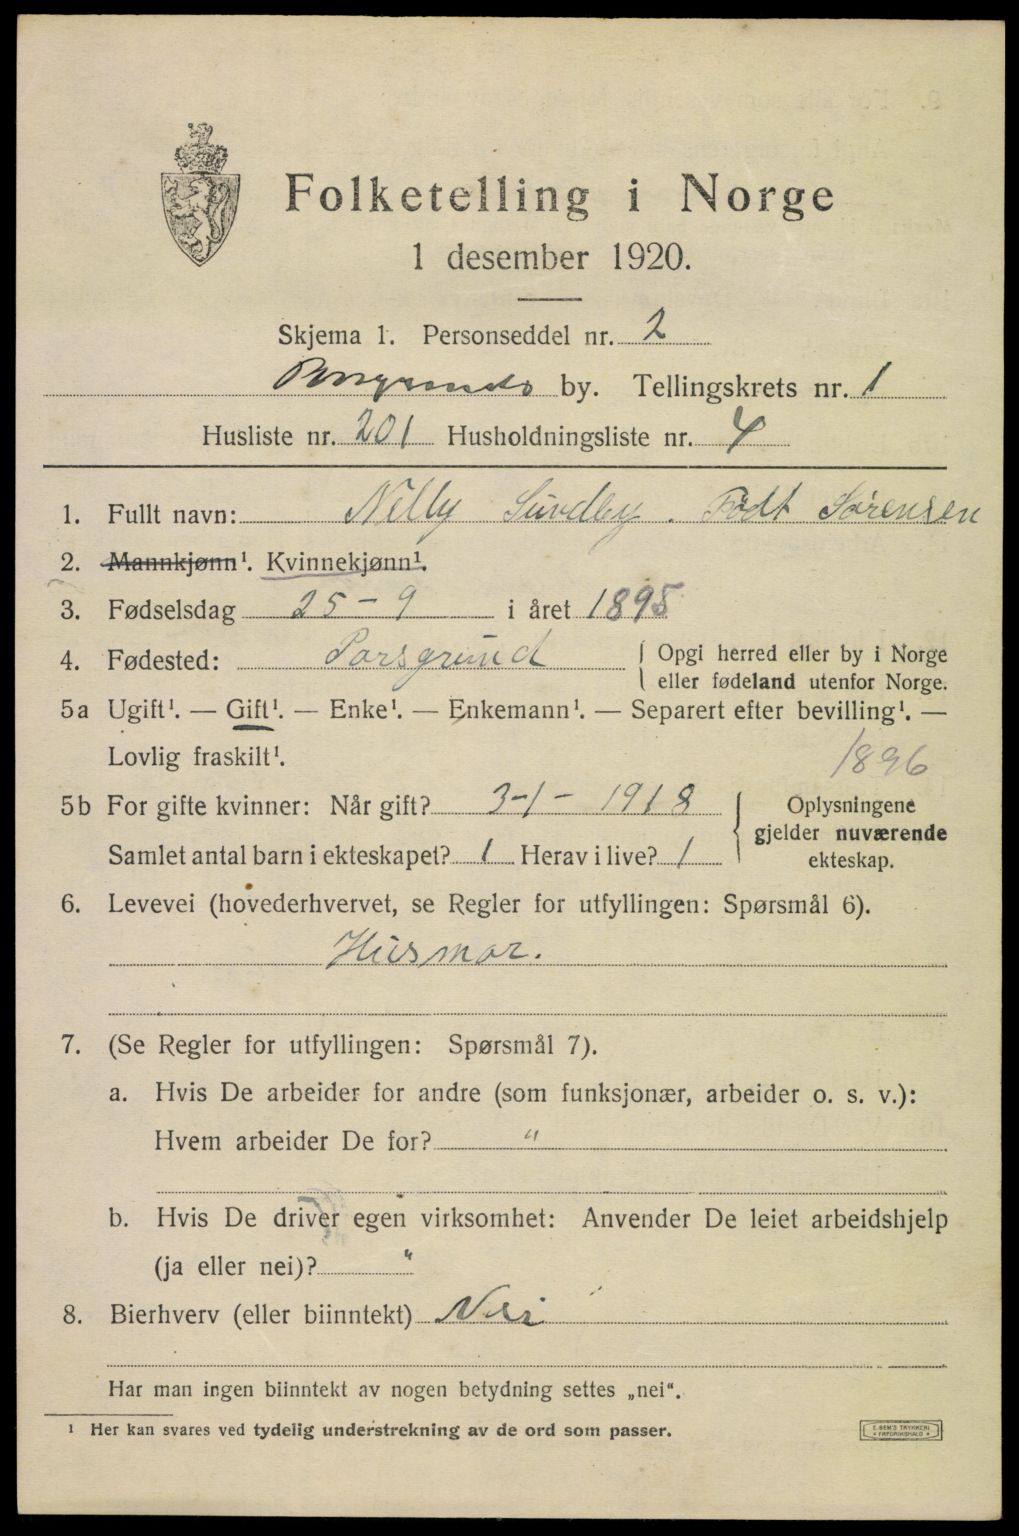 Folketelling i Norge
1 desember 1920.
Skjema 1. Personseddel nr. 2
Porsgrunds by. Tellingskrets nr. 1
Husliste nr. 201 Husholdningsliste nr. 4
1. Fullt navn: Nelly Sundby. Født Sørensen
2. Mannkjønn¹. Kvinnekjønn¹.
3. Fødselsdag 25-9 i året 1895
4. Fødested: Porsgrund { Opgi herred eller by i Norge
eller fødeland utenfor Norge.
5a Ugift¹. — Gift¹. — Enke¹. — Enkemann¹. — Separert efter bevilling¹. —
Lovlig fraskilt¹. 1896
5b For gifte kvinner: Når gift? 3-1-1918 { Oplysningene
gjelder nuværende
Samlet antal barn i ekteskapet? 1 Herav i live? 1 ekteskap.
6. Levevei (hovederhvervet, se Regler for utfyllingen: Spørsmål 6).
Husmor.
7. (Se Regler for utfyllingen: Spørsmål 7).
a. Hvis De arbeider for andre (som funksjonær, arbeider o. s. v.):
Hvem arbeider De for? "
b. Hvis De driver egen virksomhet: Anvender De leiet arbeidshjelp
(ja eller nei)? "
8. Bierhverv (eller biinntekt) Nei
Har man ingen biinntekt av nogen betydning settes „nei“.
¹ Her kan svares ved tydelig understrekning av de ord som passer.
E. SEM'S TRYKKERI
FREDRIKSHALD